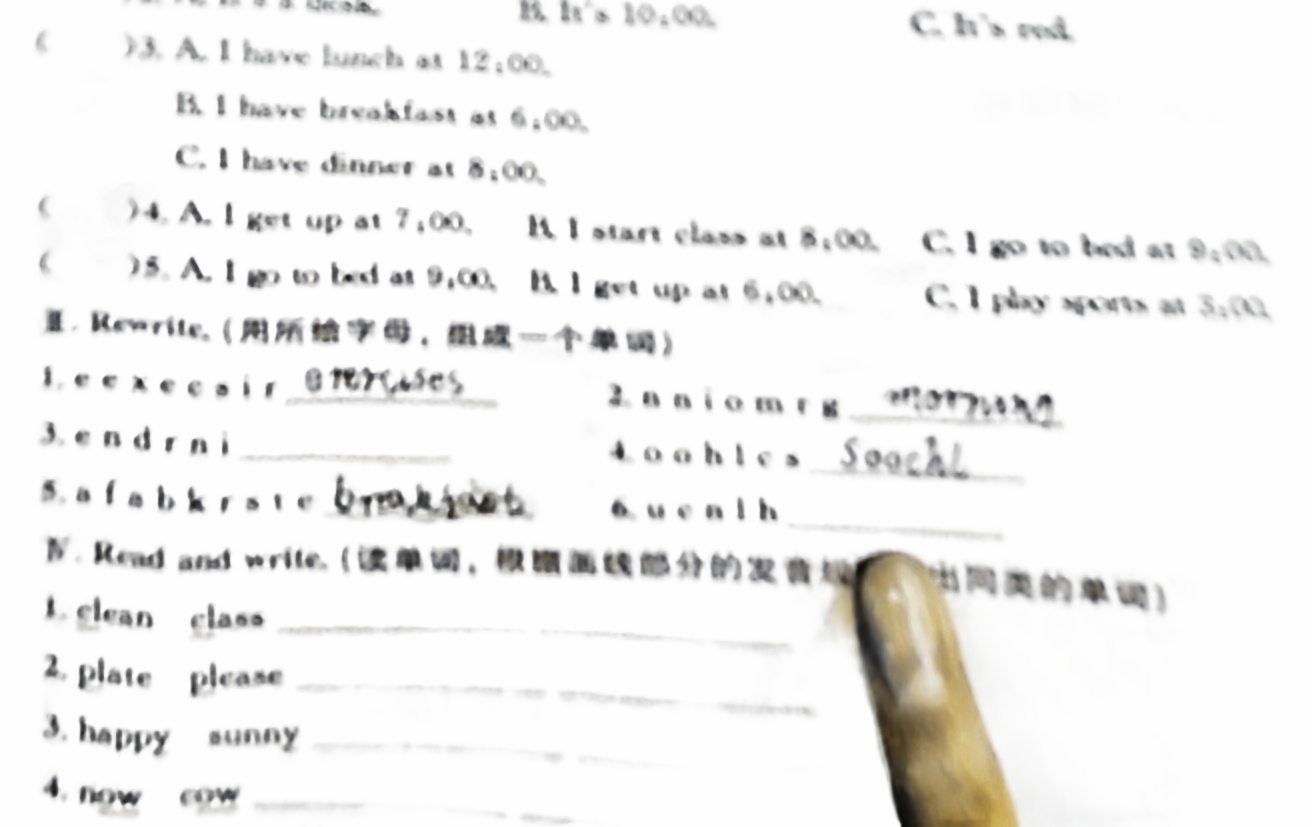 B. It's 10:00. C. It's red.
( )3. A. I have lunch at 12:00.
B. I have breakfast at 6:00.
C. I have dinner at 8:00.
( )4. A. I get up at 7:00. B. I start class at 8:00. C. I go to bed at 9:00.
( )5. A. I go to bed at 9:00. B. I get up at 6:00. C. I play sports at 5:00.
Ⅲ. Rewrite. (用所给字母，组成一个单词)
1. e e x e c s i r
2. n n i o m r g morning
3. e n d r n i
4. o o h l c s Soochl
5. a f a b k r s t e breakfast
6. u c n l h
Ⅳ. Read and write. (读单词，根据画线部分的发音 出同类的单词)
1. clean class
2. plate please
3. happy sunny
4. now cow